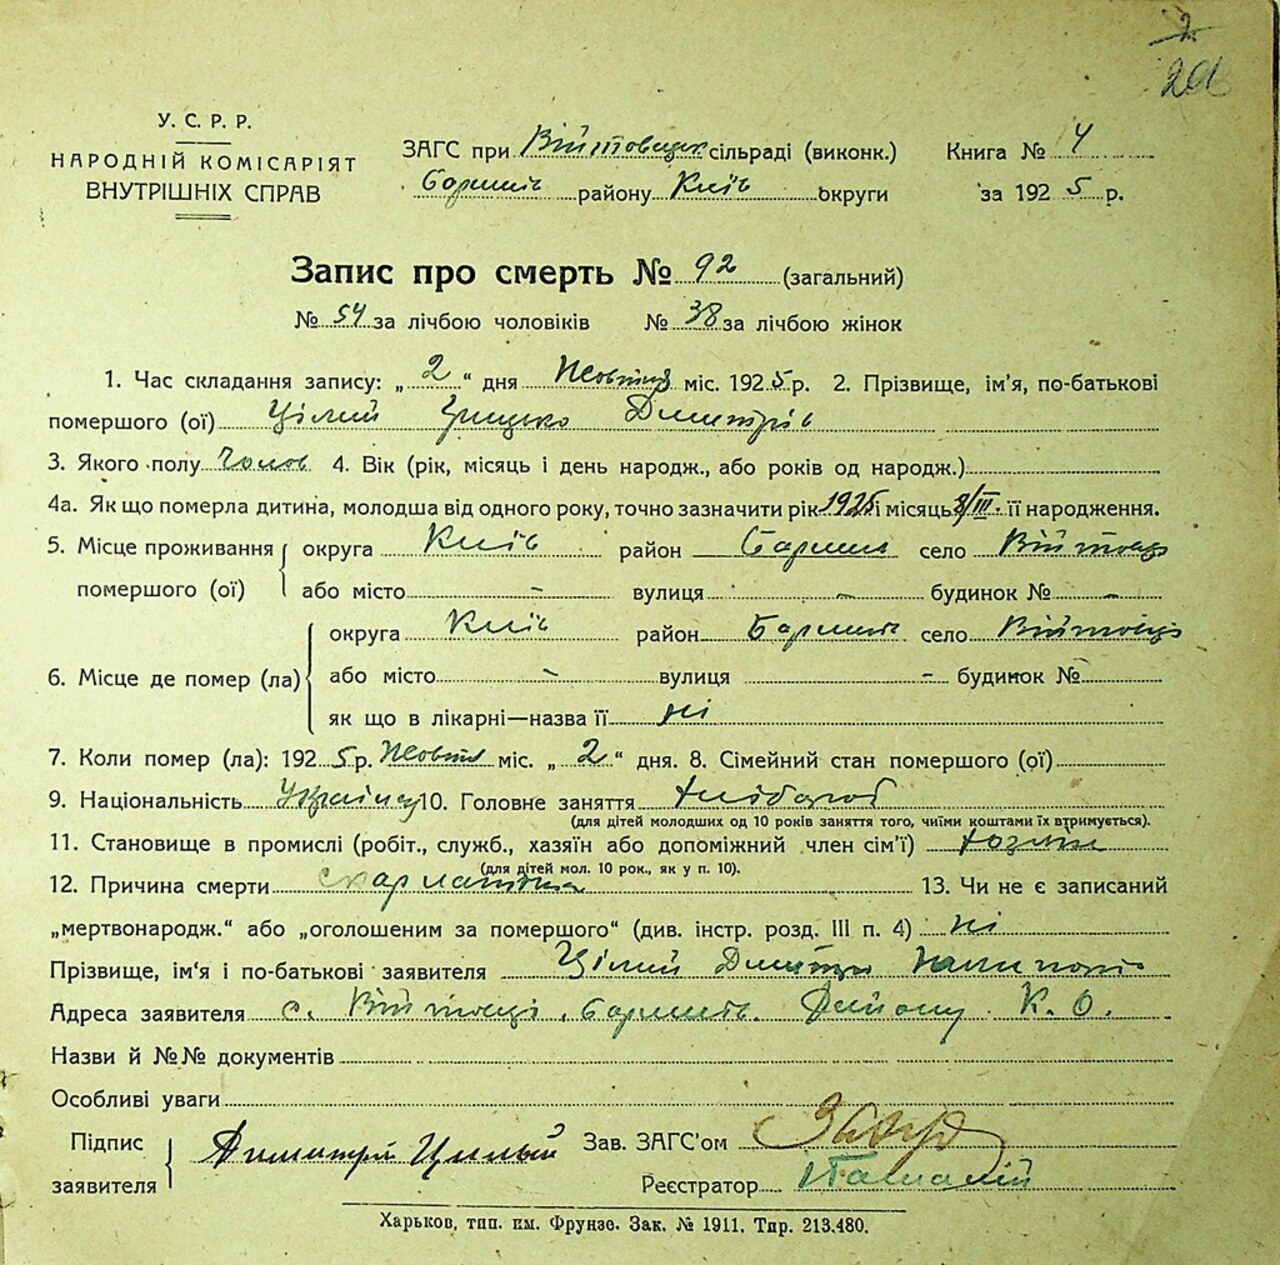 У. С. Р. Р.
НАРОДНІЙ КОМІСАРІЯТ
ВНУТРІШНІХ СПРАВ
ЗАГС при Війтовецьк сільраді (виконк.) Книга № 4
Баришів району Київ округи за 1925 р.
Запис про смерть № 92 (загальний)
№ 54 за лічбою чоловіків № 38 за лічбою жінок
1. Час складання запису: „2“ дня Жовтня міс. 1925 р. 2. Прізвище, ім'я, по-батькові
помершого (ої) Цілий Грицько Дмитрів
3. Якого полу Чолов 4. Вік (рік, місяць і день народж., або років од народж.)
4а. Як що померла дитина, молодша від одного року, точно зазначити рік 1925 і місяць 8/III. її народження.
5. Місце проживання помершого (ої) округа Київ район Бариш село Війтовці
або місто - вулиця - будинок № -
6. Місце де помер (ла) округа Київ район Баришів село Війтовці
або місто - вулиця - будинок №
як що в лікарні—назва її ні
7. Коли помер (ла): 1925 р. Жовтня міс. „2“ дня. 8. Сімейний стан помершого (ої)
9. Національність 10. Головне заняття Хлібороб
(для дітей молодших од 10 років заняття того, чиїми коштами їх втримується).
11. Становище в промислі (робіт., служб., хазяїн або допоміжний член сім'ї)
(для дітей мол. 10 рок., як у п. 10).
12. Причина смерти скарлатина 13. Чи не є записаний
„мертвонародж.“ або „оголошеним за помершого“ (див. інстр. розд. III п. 4) ні
Прізвище, ім'я і по-батькові заявителя Цілий Дмитро
Адреса заявителя с. Війтовці, Баришів. Району К. О.
Назви й №№ документів
Особливі уваги
Підпис заявителя Димитрій Цилый Зав. ЗАГС'ом
Реєстратор
Харьков, тип. им. Фрунзе. Зак. № 1911. Тир. 213.480.